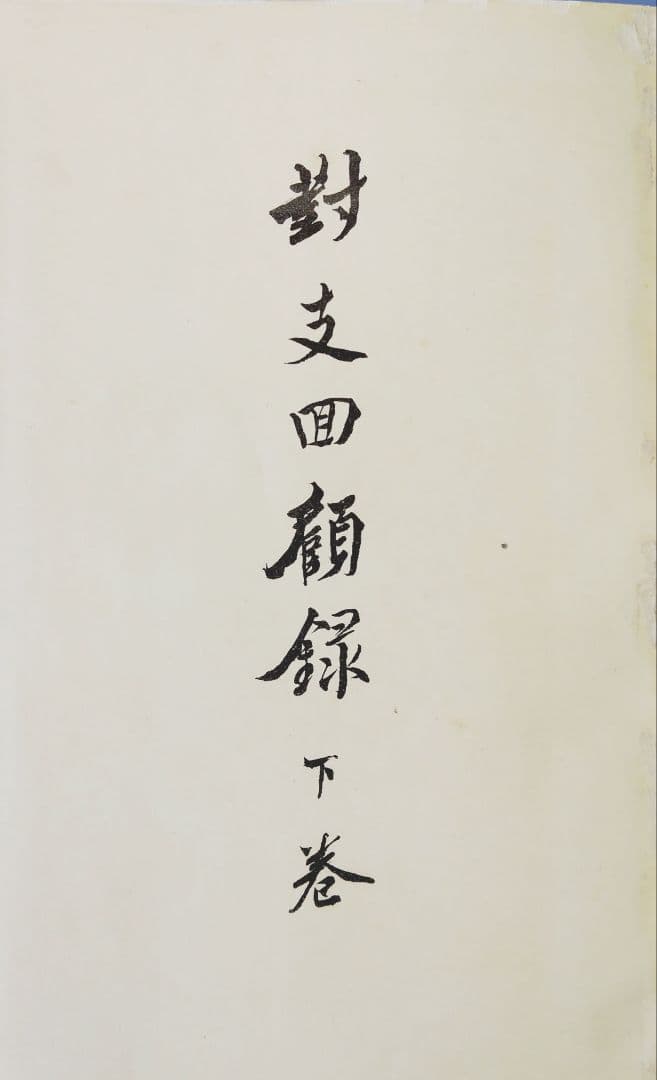 對支回顧録下卷